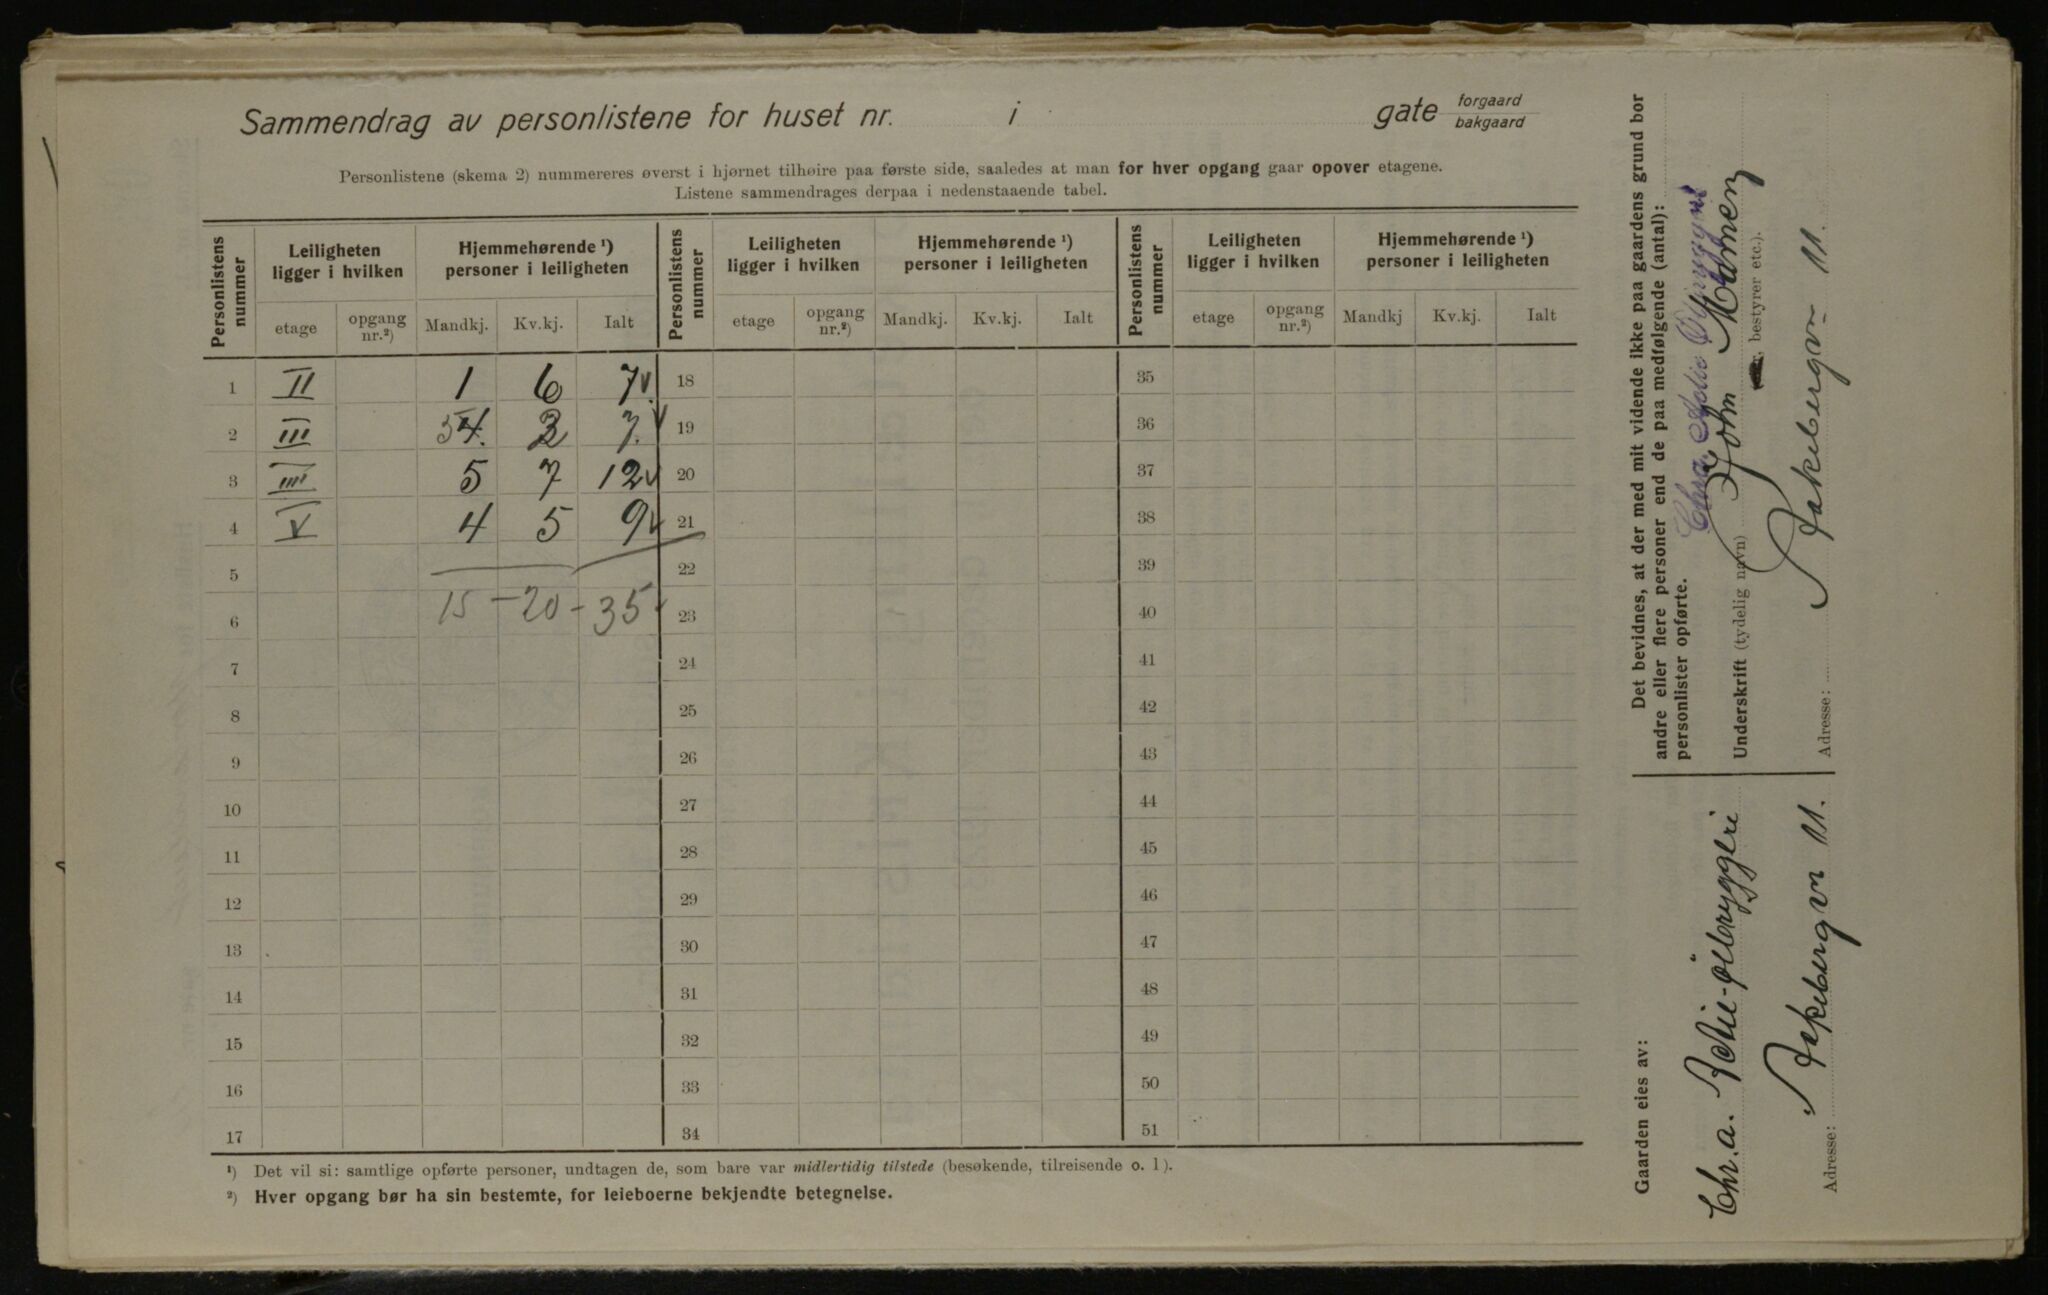 Sammendrag av personlistene for huset nr. i gate forgaard bakgaard
Personlistene (skema 2) nummereres øverst i hjørnet tilhøire paa første side, saaledes at man for hver opgang gaar opover etagene.
Listene sammendrages derpaa i nedenstaaende tabel.
Personlistens nummer Leiligheten ligger i hvilken Hjemmehørende ¹) personer i leiligheten Personlistens nummer Leiligheten ligger i hvilken Hjemmehørende ¹) personer i leiligheten Personlistens nummer Leiligheten ligger i hvilken Hjemmehørende ¹) personer i leiligheten
etage opgang nr.²) Mandkj. Kv.kj. Ialt etage opgang nr.²) Mandkj. Kv.kj. Ialt etage opgang nr.²) Mandkj Kv.kj. Ialt
1 II 1 6 7 v. 18 35
2 III 5 4. 2 7. v 19 36
3 IIII 5 7 12 v 20 37
4 V 4 5 9 v 21 38
5 22 39
6 15 - 20 - 35 v 23 40
7 24 41
8 25 42
9 26 43
10 27 44
11 28 45
12 29 46
13 30 47
14 31 48
15 32 49
16 33 50
17 34 51
¹) Det vil si: samtlige opførte personer, undtagen de, som bare var midlertidig tilstede (besøkende, tilreisende o. l).
²) Hver opgang bør ha sin bestemte, for leieboerne bekjendte betegnelse.
Det bevidnes, at der med mit vidende ikke paa gaardens grund bor
andre eller flere personer end de paa medfølgende (antal):
personlister opførte.
Underskrift (tydelig navn) John
, bestyrer etc.).
Adresse: Aakebergvn 11.
Gaarden eies av:
Chr.a. Aktie-ølbryggeri
Adresse: Aakebergvn 11.